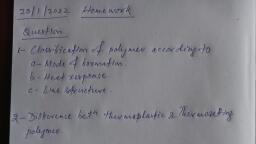 20/1/2022 Homework
Question
1- Classification of polymer according to
a- Mode of formation.
b- Heat response
c- Line structure.
2- Difference beth thermoplastic & Thermosetting
polymer